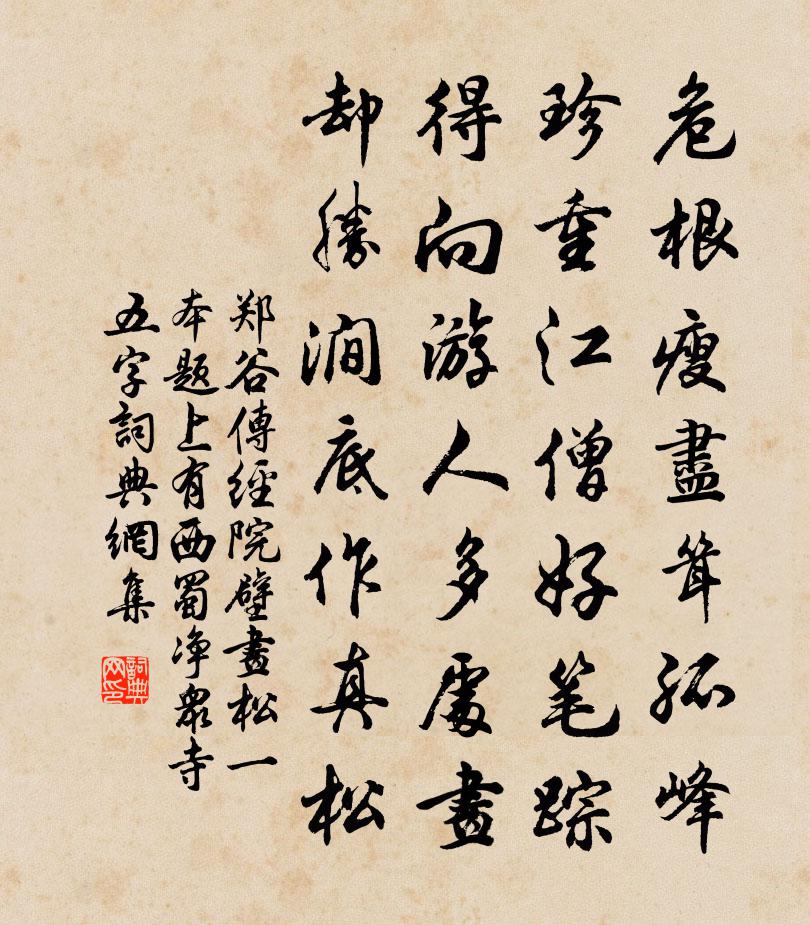 危根瘦盡聳孤峰
珍重江僧好笔踪
得向游人多處畫
却勝澗底作真松
郑谷傳經院壁畫松一
本題上有西蜀净衆寺
五字詞典網集
詞典网印